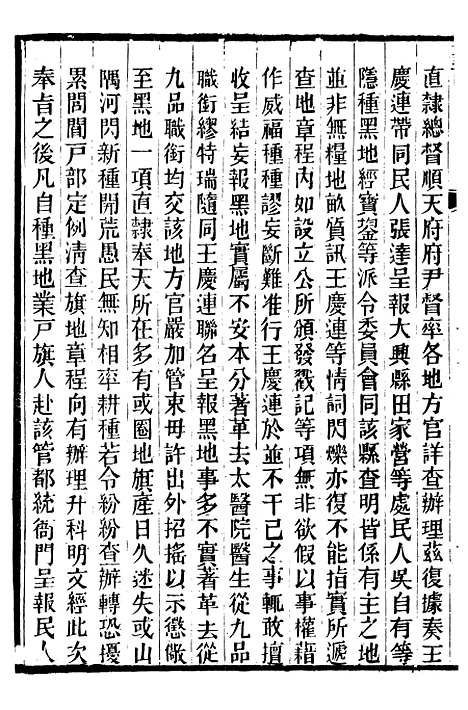 直隸總督順天府府尹督率各地方官詳查辦理茲復據奏王
慶連帶同民人張達呈報大興縣田家營等處民人吳自有等
隱種黑地經寶鋆等派令委員會同該縣查明皆係有主之地
並非無糧地畝質訊王慶連等情詞閃爍亦復不能指實所遞
查地章程內如設立公所頒發戳記等項無非欲假以事權藉
作威福種種謬妄斷難准行王慶連於並不干己之事輒敢擅
收呈結妄報黑地實屬不安本分著革去太醫院醫生從九品
職銜繆特瑞隨同王慶連聯名呈報黑地事多不實著革去從
九品職銜均交該地方官嚴加管束毋許出外招搖以示懲儆
至黑地一項直隸奉天所在多有或圈地旗產日久迷失或山
隅河閃新種開荒愚民無知相率耕種若令紛紛查辦轉恐擾
累閭閻戶部定例清查旗地章程向有辦理升科明文經此次
奉旨之後凡自種黑地業戶旗人赴該管都統衙門呈報民人